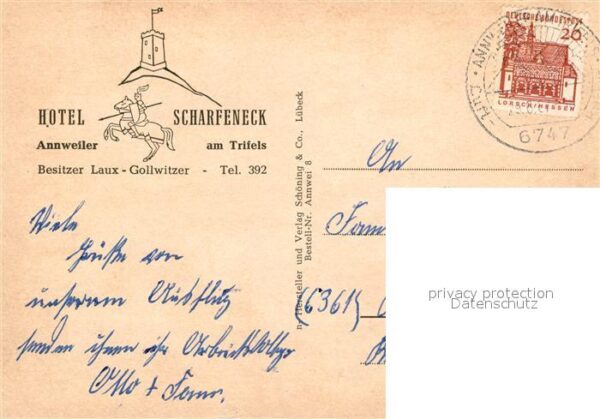 HOTEL SCHARFENECK
Annweiler am Trifels
Besitzer Laux - Gollwitzer - Tel. 392
Viele
Grüße von
unserem Ausflug
senden ihnen ihr
Otto + Fam.
Hersteller und Verlag Schöning & Co., Lübeck
Bestell-Nr. Annwei 8
DEUTSCHE BUNDESPOST
20
LORSCH/HESSEN
6747
An
Fam
(6361)
privacy protection
Datenschutz